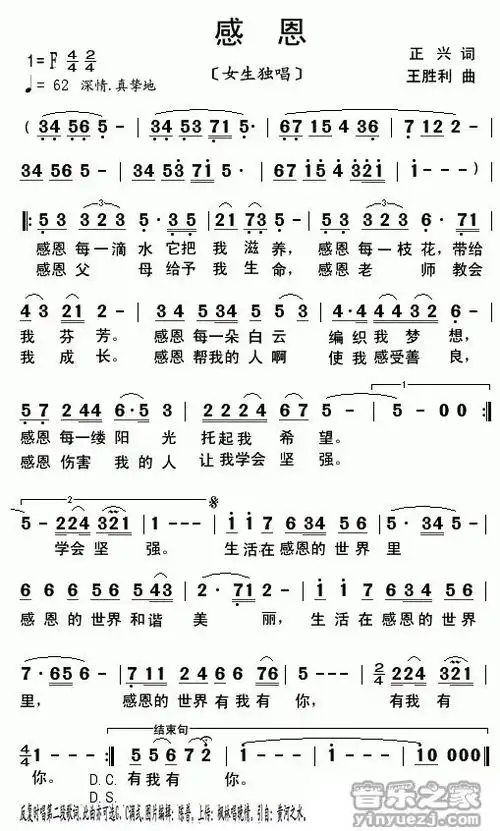 感 恩
1=F 4/4 2/4
〔女生独唱〕
正 兴 词
♩= 62 深情.真挚地
王胜利 曲
( 34 56 5 - | 34 5·3 71 5· | 67 15 4 36 7 - |
34 56 5 - | 34 53 71 5· | 67 15 4 321 | 1 - - - )
‖: 5 3 3 2 3 5· 3 5 | 21 73 5 - | 5 3 3 2 3 6· 71 |
感恩 每一滴 水 它把 我 滋 养, 感恩 每一枝 花, 带给
感恩 父 母 给予 我 生 命, 感恩 老 师 教会
4 3 21 2 - | 34 5 534 5 | 4· 4 4 43 1 2 - |
我 芬 芳。 感恩 每一朵 白云 编 织我 梦 想,
我 成 长。 感恩 帮我的 人啊 使 我感受善 良,
5 7 2 44 6·5 3 | 2 2 2 4 67 5 - | 5 - 00 :‖
感恩 每一缕 阳 光 托起我 希 望。
感恩 伤害 我的 人 让我学会 坚 强。
5 - 224 321 | 1 - - - | 1 1 7 6 34 5 6 | 5· 34 5 - |
学会 坚 强。 生活在 感恩的 世界 里
6 6 6 56 5 43 | 2· 7 1 - | 1 1 7 6 34 5 6 |
感恩 的 世界 和谐 美 丽, 生活 在 感恩的 世界
7· 656 - | 7 11 2 4 66 76 | 1 - - - | 2/4 224 321 |
里, 感恩的 世界 有我 有 你, 有我 有
结束句
4/4 1 - - - :‖ 5 5 6 7 2 | 1 - - - | 1 0 000 ‖
你。 D.C. 有我 有 你。
D.S.
反复时唱第二段歌词.此曲亦可选G、C调式.图片编辑: 陈普。上传: 枫林唱晚情。引自: 黄河之水。
音乐之家
www.yinyuezj.com